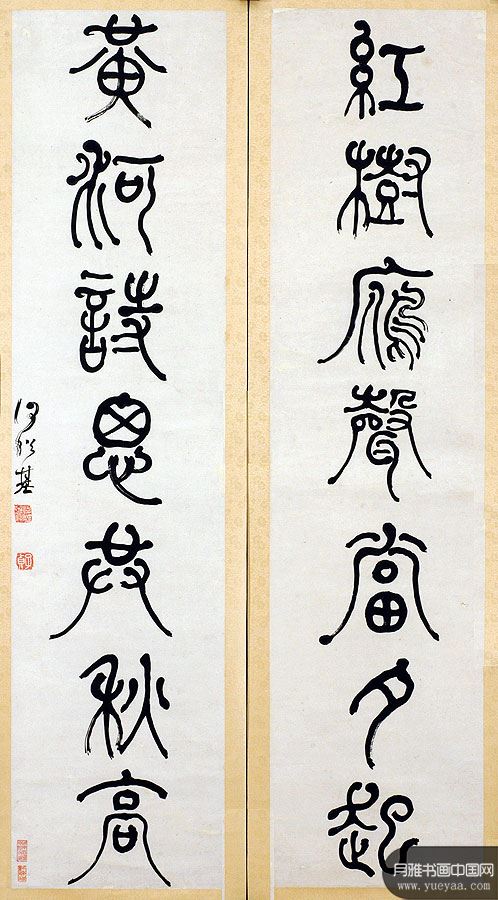 紅樹鴈聲當夕起
黃河詩思共秋高
何紹基
月雅书画中国网
www.yueyaa.com